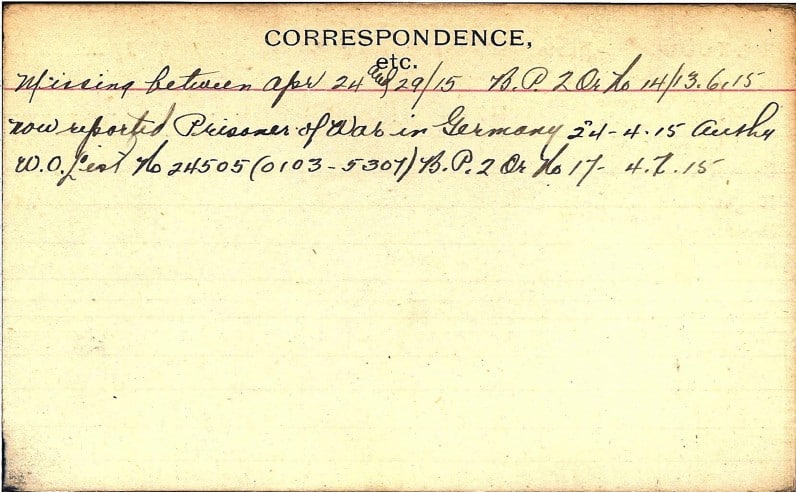 CORRESPONDENCE,
etc.
Missing between Apr 24 and 29/15 B.P. 2 Or No 14/13.6.15
now reported Prisoner of War in Germany 24-4.15 Authy
W.O. List No 24505 (0103-5307) B.P. 2 Or No 17- 4.7.15